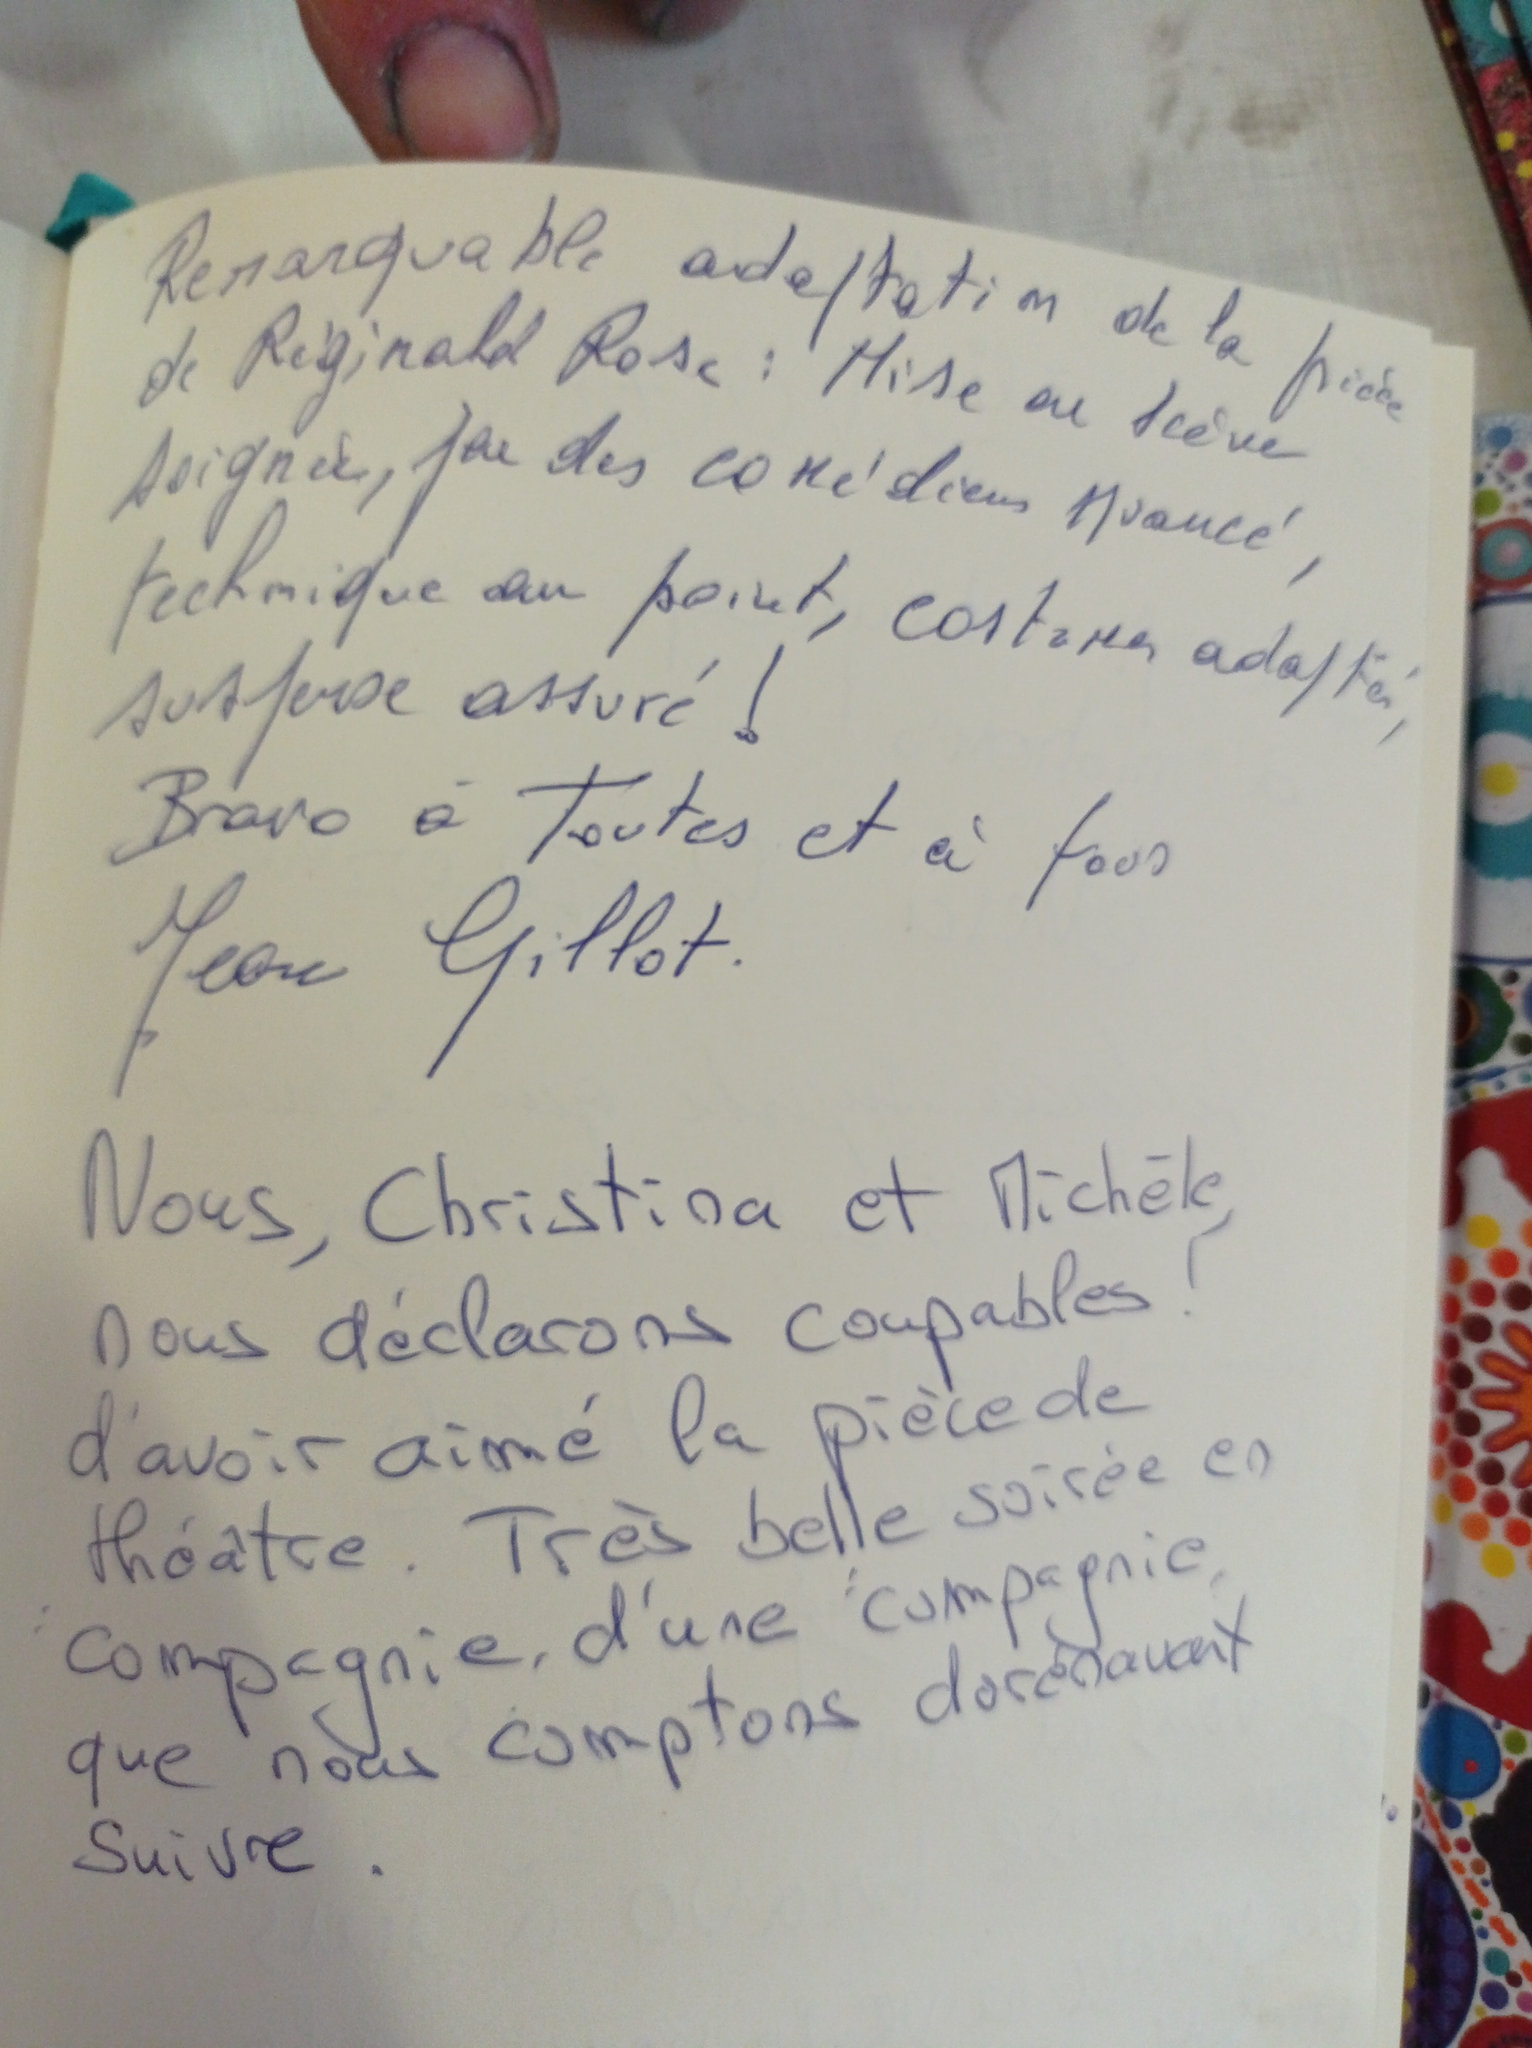 Remarquable adaptation de la pièce
de Réginald Rose : Mise en scène
soignée, jeu des comédiens nuancé,
technique au point, costumes adaptés,
suspense assuré !
Bravo à Toutes et à tous
Jean Gillot.
Nous, Christina et Michèle,
nous déclarons coupables !
d'avoir aimé la pièce de
théâtre. Très belle soirée en
compagnie, d'une compagnie,
que nous comptons dorénavant
suivre.